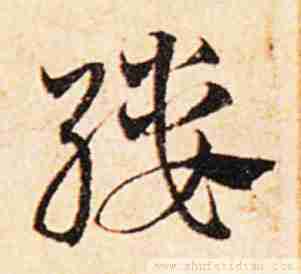 缕
www.shufazidian.com